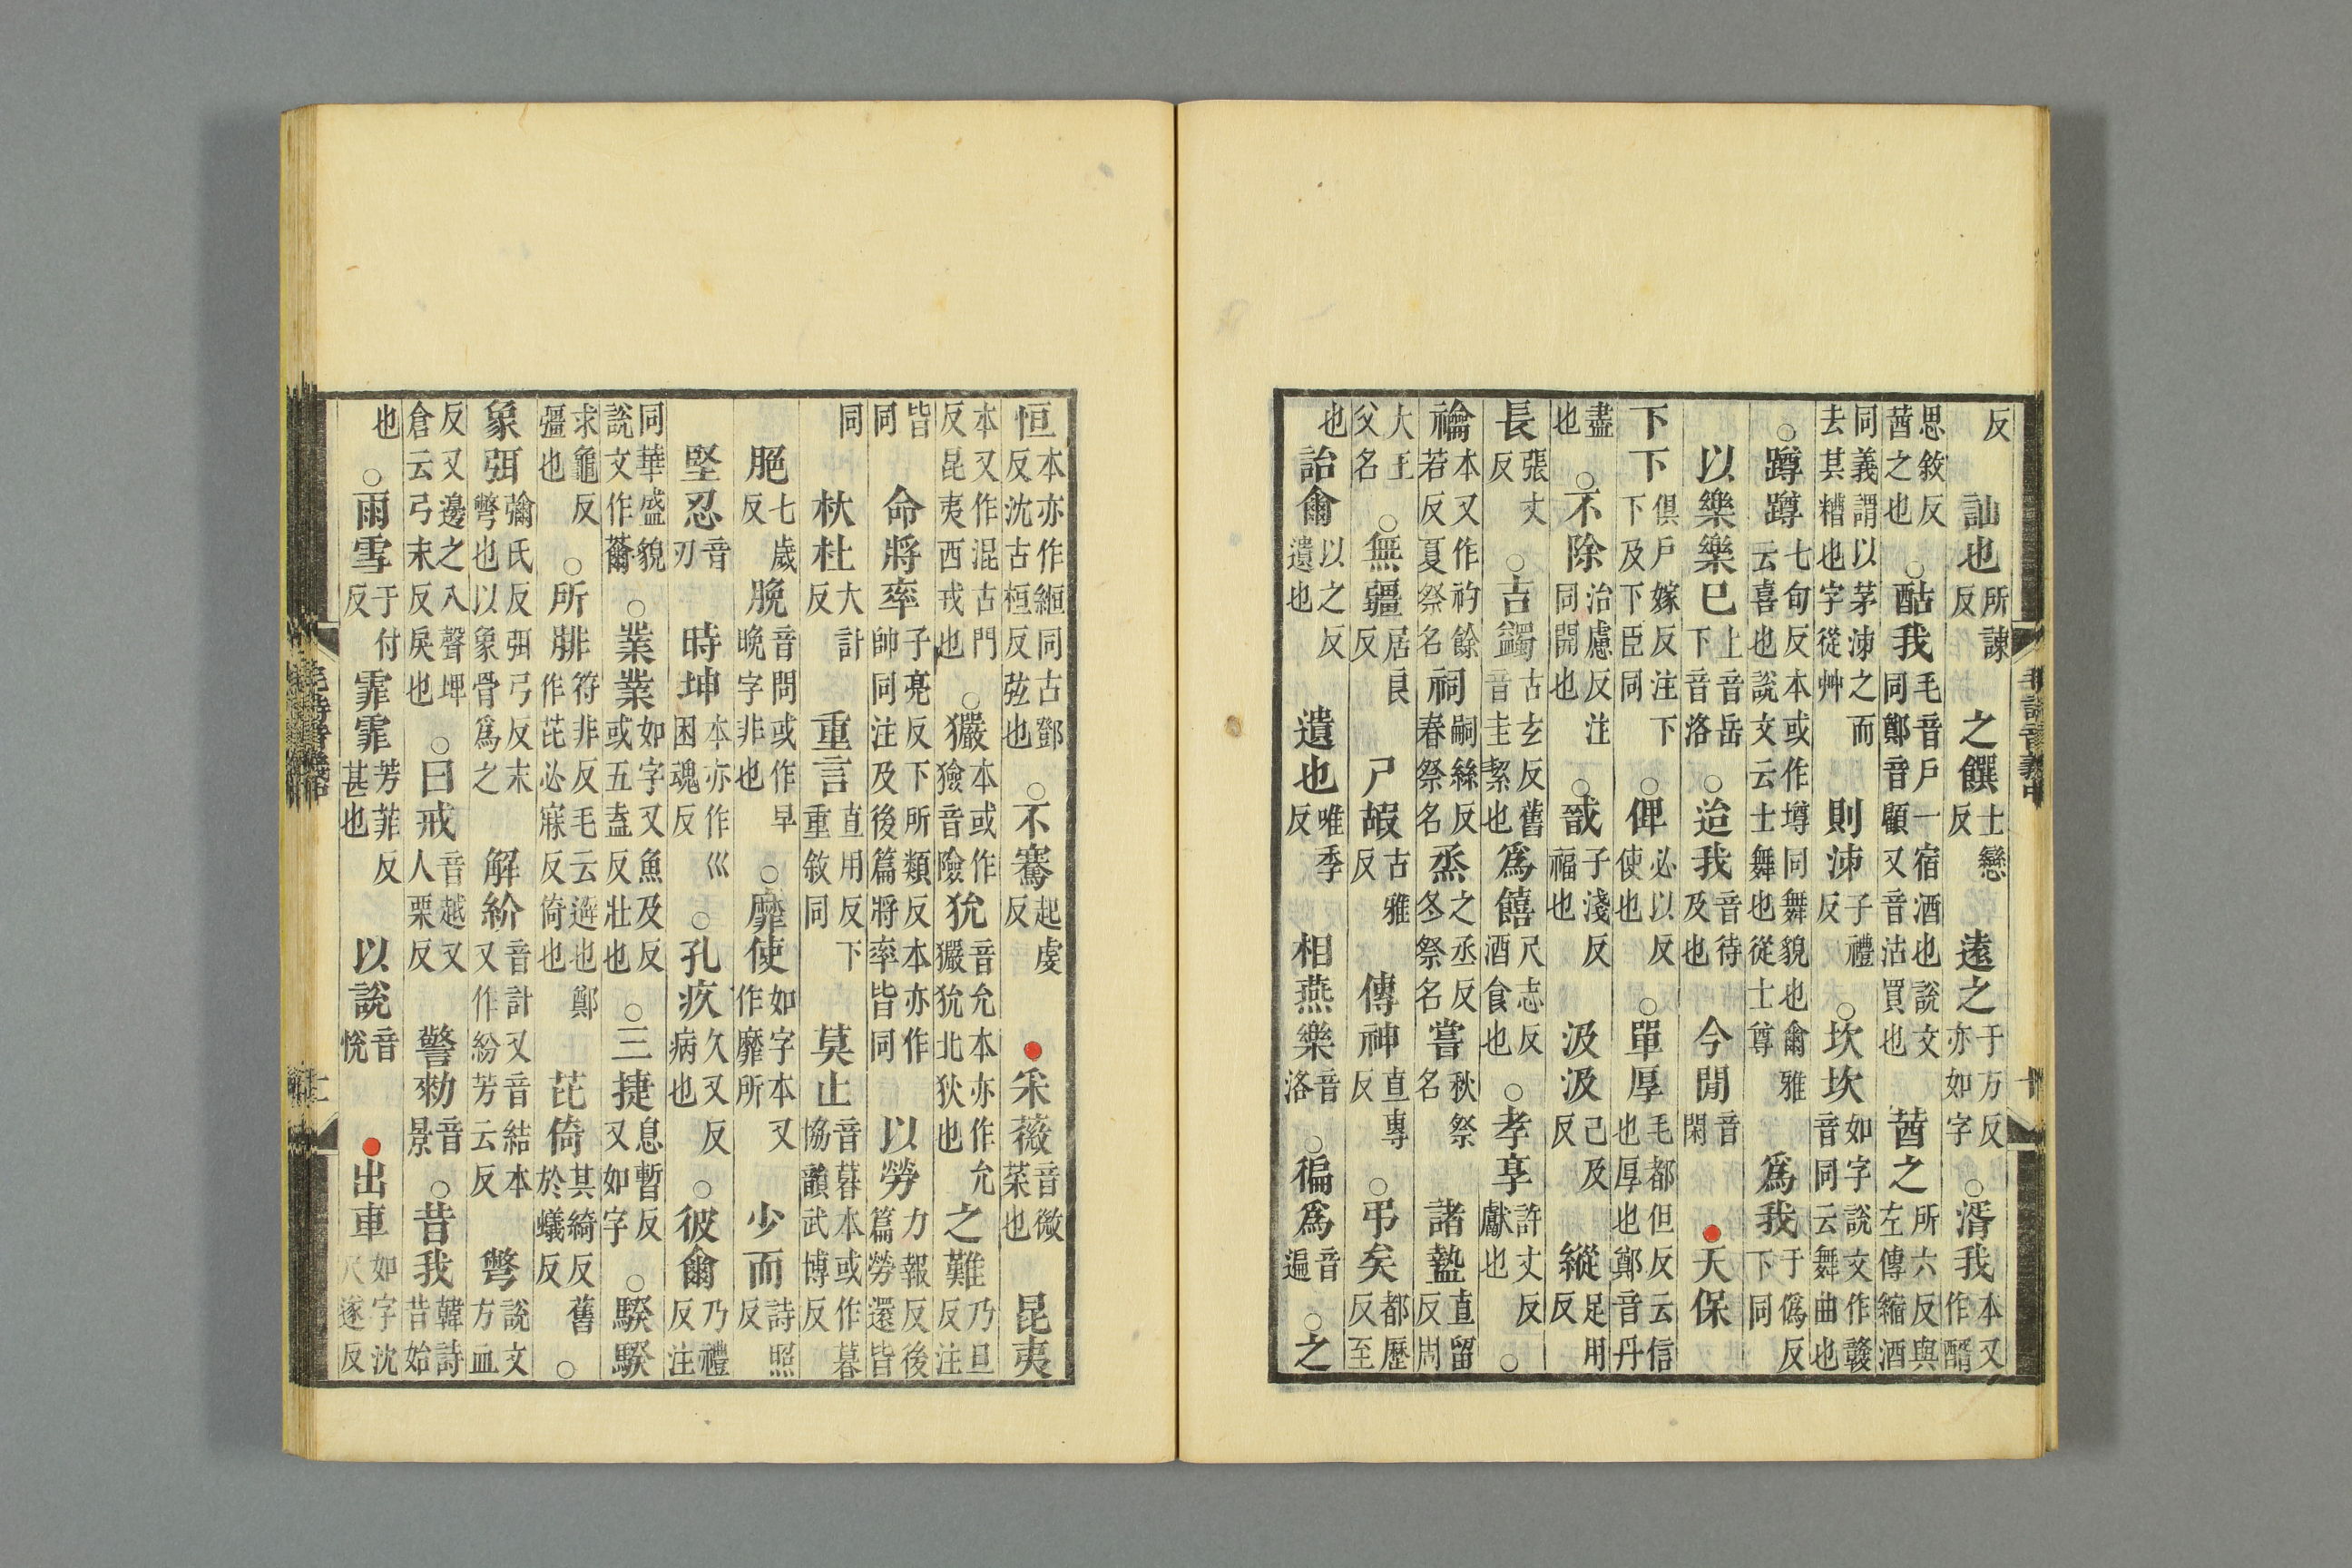 反訕也所諫反之饌士戀反遠之于万反亦如字○湑我本又作醑
思敘反茜之也○酤我毛音戶一宿酒也說文同鄭音顧又音沽買也茜之所六反與左傳縮酒
同義謂以茅泲之而去其糟也字從艸則泲子禮反○坎坎如字說文作竷音同云舞曲也
○蹲蹲七旬反本或作墫同舞貌也爾雅云喜也說文云士舞也從士尊爲我于僞反下同
以樂樂已上音岳下音洛○迨我音待及也今閒音閑●天保
下下俱戶嫁反注下下及下臣同○俾必以反使也○單厚毛都但反云信也厚也鄭音丹
盡也○不除治慮反注同開也○戩子淺反福也汲汲己及反縱足用反
長張丈反○吉蠲古玄反舊音圭絜也爲饎尺志反酒食也○孝享許丈反獻也○
禴本又作礿餘若反夏祭名祠嗣絲反春祭名烝之丞反冬祭名嘗秋祭名諸盩直留反周
大王父名○無疆居良反尸嘏古雅反傳神直專反○弔矣都歷反至
也詒爾以之反遺也遺也唯季反相燕樂音洛○徧爲音遍○之
恒本亦作縆同古鄧反沈古桓反弦也○不騫起虔反●采薇音微菜也昆夷
本又作混古門反昆夷西戎也○玁本或作獫音險狁音允本亦作允玁狁北狄也之難乃旦反注
皆同命將率子亮反下所類反本亦作帥同注及後篇將率皆同以勞力報反後篇勞還皆
同杕杜大計反重言直用反下重敘同莫止音暮本或作暮協韻武博反
脃七歲反脕音問或作早晚字非也○靡使如字本又作靡所少而詩照反
堅忍音刃時坤本亦作巛困魂反○孔疚久又反病也○彼爾乃禮反注
同華盛貌說文作薾○業業如字又魚及反或五盍反壯也○三捷息暫反又如字○騤騤
求龜反彊也○所腓符非反毛云避也鄭作芘必寐反倚也芘倚其綺反舊於蟻反○
象弭彌氏反弭弓反末彆也以象骨爲之解紒音計又音結本又作紛芳云反彆說文方血
反又邊之入聲埤倉云弓末反戾也○曰戒音越又人栗反警勑音景○昔我韓詩昔始
也○雨雪于付反霏霏芳菲反甚也以說音悅●出車如字沈尺遂反
毛詩音義中
十